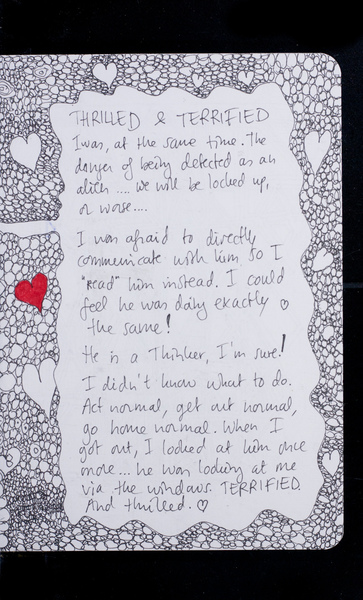 THRILLED & TERRIFIED
I was, at the same time. The
danger of being detected as an
alien .... we will be locked up,
or worse....
I was afraid to directly
communicate with him so I
"read" him instead. I could
feel he was doing exactly
the same!
He is a Thinker, I'm sure!
I didn't know what to do.
Act normal, get out normal,
go home normal. When I
got out, I looked at him once
more... he was looking at me
via the windows. TERRIFIED.
And thrilled.